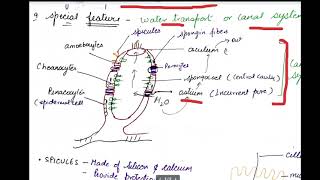 9. special feature - water transport or canal system
spicules
spongin fibres
→ out
amoebocytes
osculum
Choanocytes
Porocytes
spongocoel (central cavity)
Pinacocytes
(epidermal cell)
ostium (incurrent pore)
H₂O
• SPICULES - Made of Silicon & calcium
Provide protection